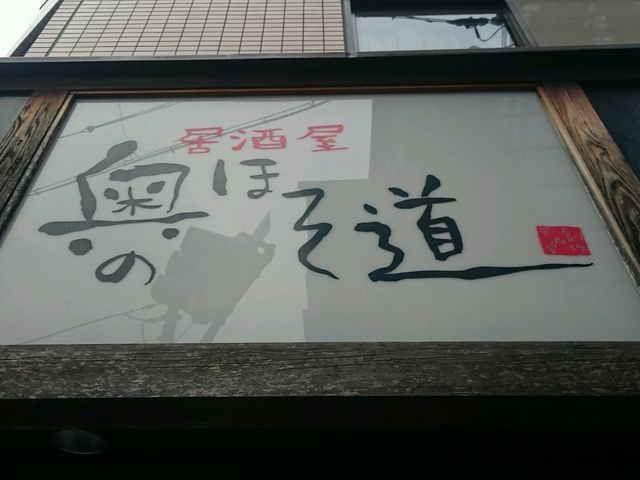 居酒屋
奥の
ほそ道